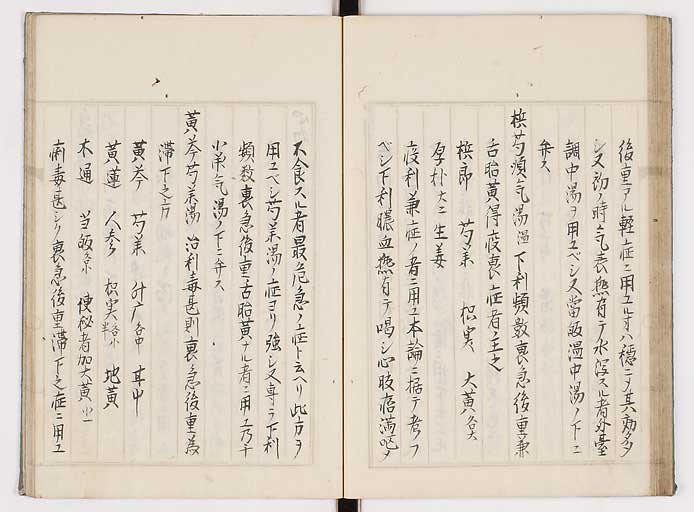 後重アル軽症ニ用ユル方ハ穏ニメ其効多
シ又初ノ時気表熱有テ水瀉スル者外臺
調中湯ヲ用ユベシ又當皈温中湯ノ下ニ
弁ス
梹芍順気湯 温 下利頻数裏急後重兼
舌胎黄得疫裏症者主之
梹郎 芍薬 枳実 大黄各大
厚朴大二 生姜
疫利兼症ノ者ニ用ユ本論ニ据テ考フ
ベシ下利膿血熱有テ渇シ心肢痞満
不食スル者最危急ノ症ト云ヘリ此方ヲ
用ユベシ芍薬湯ノ症ヨリ強シ又専ラ下利
頻数裏急後重舌胎黄ナル者ニ用ユ乃チ
小承気湯ノ下ニ弁ス
黄芩芍薬湯 治利毒甚則裏急後重為
滞下之方
黄芩 芍薬 升广各中 甘中
黄連 人参 枳実各小半 地黄
木通 当皈各小 便秘者加大黄小一
痢毒甚シク裏急後重滞下之症ニ用ユ